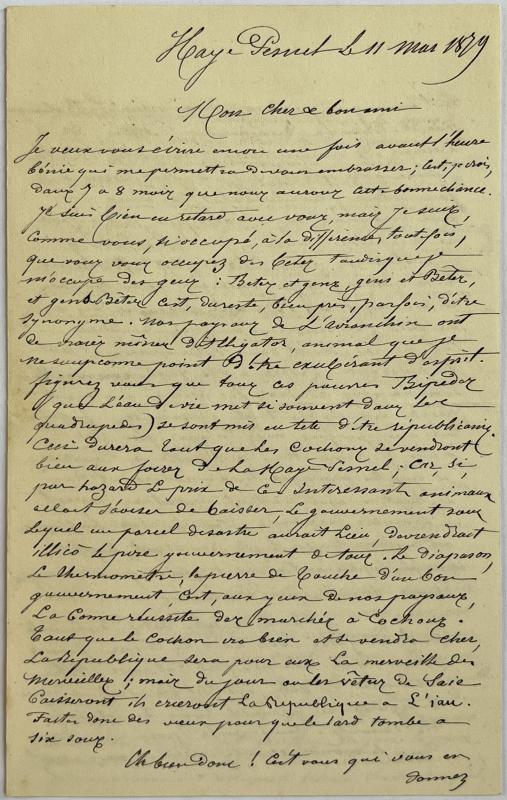 Haye Pesnel le 11 mai 1879
Mon cher & bon ami
Je veux vous écrire encore une fois avant l'heure
bénie qui me permettra de vous embrasser ; c'est, je crois,
dans 7 à 8 mois que nous aurons cette bonne chance.
Je suis bien en retard avec vous, mais je suis,
comme vous, si occupé, à la différence, toutefois,
que vous vous occupez des bêtes tandis que je
m'occupe des gens : Bêtes et gens, gens et Bêtes,
et gens Bêtes c'est, du reste, bien près, parfois, d'être
synonyme. Nos paysans de L'avranchin ont
de vraies mines d'Alligator, animal que je
ne soupçonne point d'être exubérant d'esprit.
figurez vous que tous ces pauvres Bipèdes
(que L'eau de vie met si souvent dans les
quadrupèdes) se sont mis en tête d'être républicains.
Ceci durera tant que les Cochons se vendront
bien aux foires de La Haye Pesnel ; Car, si,
par hazard le prix de ces Intéressants animaux
allait s'aviser de baisser, Le gouvernement sous
lequel un pareil désastre aurait lieu, deviendrait
illico le pire gouvernement de tous. Le diapason,
Le thermomètre, la pierre de Touche d'un bon
gouvernement c'est, aux yeux de nos paysans,
La bonne réussite des marchés à cochons.
Tant que le cochon ira bien et se vendra cher,
La République sera pour eux La merveille des
Merveilles ; mais du jour où les vêtus de Soie
baisseront ils crieront La République à L'eau.
Faites donc des vœux pour que le lard tombe à
six sous.
Eh bien donc ! C'est vous qui vous en
donnez